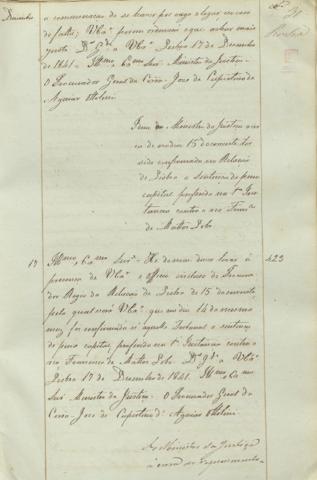 Dezembro
a commemoração de se haver por vago algum, em caso
de falta; VExa porem ordenará o que achar mais
justo. Ds Ge a VExa Lisboa 17 de Dezembro
de 1841 = Illmo Exmo Snr. Ministro da Justiça =
O Procurador Geral da Corôa = Joze de Cupertino de
Aguiar Ottolini
Ao Ministro da Justiça
de 15 do corrente ter
sido confirmada na Relação
de Lisboa a Sentença de pena
capital proferida na 1a Ins
tancia contra o reo Franco
de Mattos Lobo
17
423
Illmo Exmo Snr = Tenho a honra levar á
presença de VExa o officio incluso do Procura
dor Regio da Relação de Lisboa de 15 do corrente,
pelo qual verá VExa que no dia 14 do mesmo
mez foi confirmada n'aquelle Tribunal a sentença
de pena capital, proferida na 1a Instancia contra o
réo Francisco de Mattos Lobo. Ds Ge a VExa
Lisboa 17 de Dezembro de 1841. Illmo Exmo
Snr Ministro da Justiça = O Procurador Geral da
Corôa = Joze de Cupertino d'Aguiar Ottolini
Ao Ministro da Justiça
á cerca do Requerimento